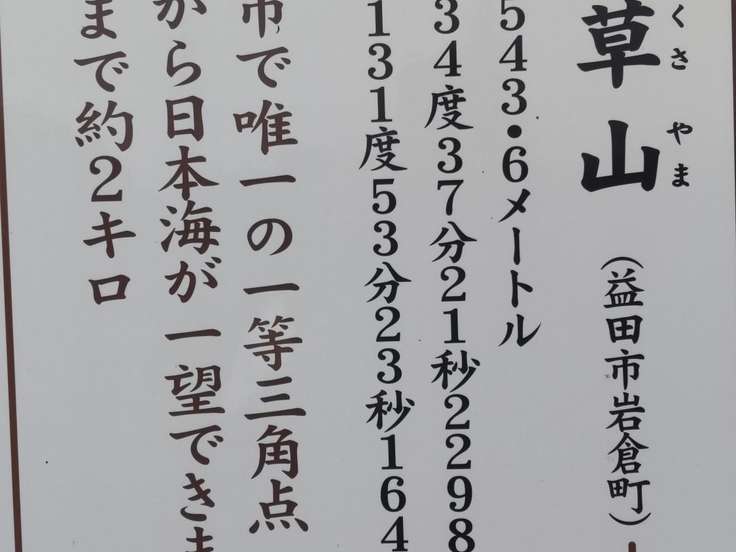 草山
くさやま
(益田市岩倉町)
543・6メートル
34度37分21秒2298
131度53分23秒164
市で唯一の一等三角点
から日本海が一望できま
まで約2キロ